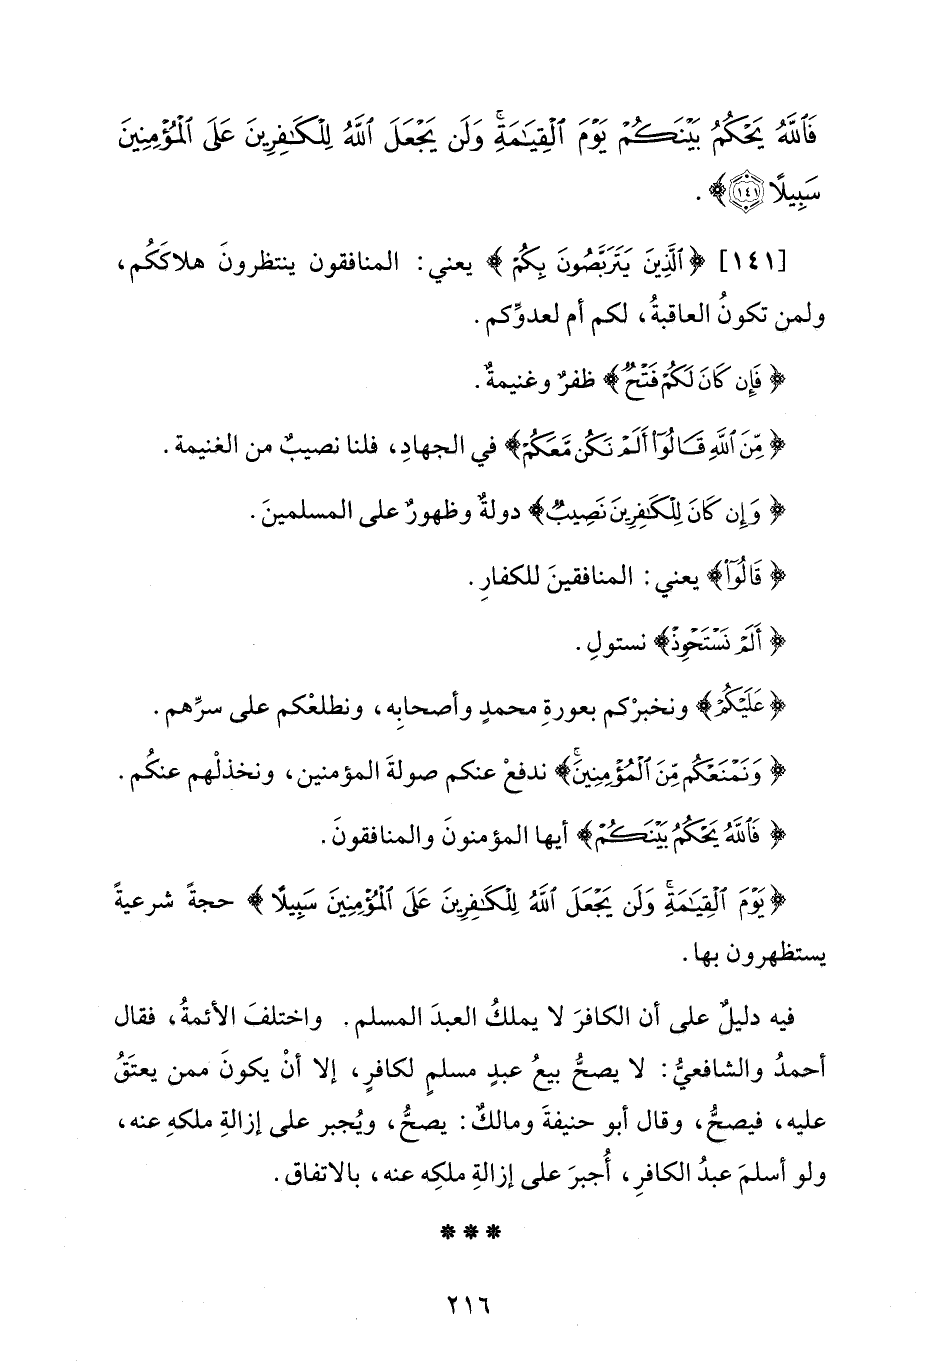 فَٱللَّهُ يَحۡكُمُ بَيۡنَكُمۡ يَوۡمَ ٱلۡقِيَٰمَةِۚ وَلَن يَجۡعَلَ ٱللَّهُ لِلۡكَٰفِرِينَ عَلَى ٱلۡمُؤۡمِنِينَ
سَبِيلًا ١٤١﴾ .
[١٤١] ﴿ٱلَّذِينَ يَتَرَبَّصُونَ بِكُمۡ﴾ يعني: المنافقون ينتظرونَ هلاكَكُم،
ولمن تكونُ العاقبةُ، لكم أم لعدوِّكم.
﴿فَإِن كَانَ لَكُمۡ فَتۡحٞ﴾ ظفرٌ وغنيمةٌ.
﴿مِّنَ ٱللَّهِ قَالُوٓاْ أَلَمۡ نَكُن مَّعَكُمۡ﴾ في الجهادِ، فلنا نصيبٌ من الغنيمة.
﴿وَإِن كَانَ لِلۡكَٰفِرِينَ نَصِيبٞ﴾ دولةٌ وظهورٌ على المسلمينَ.
﴿قَالُوٓاْ﴾ يعني: المنافقينَ للكفارِ.
﴿أَلَمۡ نَسۡتَحۡوِذۡ﴾ نستولِ.
﴿عَلَيۡكُمۡ﴾ ونخبرْكم بعورةِ محمدٍ وأصحابِه، ونطلعْكم على سرِّهم.
﴿وَنَمۡنَعۡكُم مِّنَ ٱلۡمُؤۡمِنِينَۚ﴾ ندفعْ عنكم صولةَ المؤمنين، ونخذلْهم عنكُم.
﴿فَٱللَّهُ يَحۡكُمُ بَيۡنَكُمۡ﴾ أيها المؤمنونَ والمنافقونَ.
﴿يَوۡمَ ٱلۡقِيَٰمَةِۚ وَلَن يَجۡعَلَ ٱللَّهُ لِلۡكَٰفِرِينَ عَلَى ٱلۡمُؤۡمِنِينَ سَبِيلًا﴾ حجةً شرعيةً
يستظهرون بها.
فيه دليلٌ على أن الكافرَ لا يملكُ العبدَ المسلم. واختلفَ الأئمةُ، فقال
أحمدُ والشافعيُّ: لا يصحُّ بيعُ عبدٍ مسلمٍ لكافرٍ، إلا أنْ يكونَ ممن يعتَقُ
عليه، فيصحُّ، وقال أبو حنيفةَ ومالكٌ: يصحُّ، ويُجبر على إزالةِ ملكهِ عنه،
ولو أسلمَ عبدُ الكافرِ، أُجبرَ على إزالةِ ملكِه عنه، بالاتفاق.
***
٢١٦